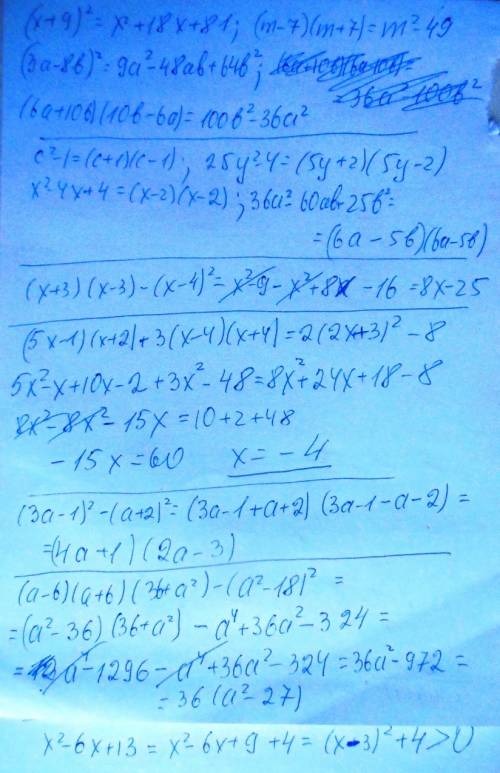 (x+9)² = x²+18x+81; (m-7)(m+7)=m²-49
(3a-8b)²=9a²-48ab+64b²;
(6a+10b)(10b-6a)=100b²-36a²
-36a²-100b²
c²-1=(c+1)(c-1); 25y²-4=(5y+2)(5y-2)
x²-4x+4=(x-2)(x-2); 36a²-60ab+25b²=
=(6a-5b)(6a-5b)
(x+3)(x-3)-(x-4)²=x²-9-x²+8x-16=8x-25
(5x-1)(x+2)+3(x-4)(x+4)=2(2x+3)²-8
5x²-x+10x-2+3x²-48=8x²+24x+18-8
8x²-8x²-15x=10+2+48
-15x=60 x=-4
(3a-1)²-(a+2)²=(3a-1+a+2)(3a-1-a-2)=
=(4a+1)(2a-3)
(a-6)(a+6)(36+a²)-(a²-18)²=
=(a²-36)(36+a²)-a⁴+36a²-324=
=a⁴-1296-a⁴+36a²-324=36a²-972=
=36(a²-27)
x²-6x+13=x²-6x+9+4=(x-3)²+4>0